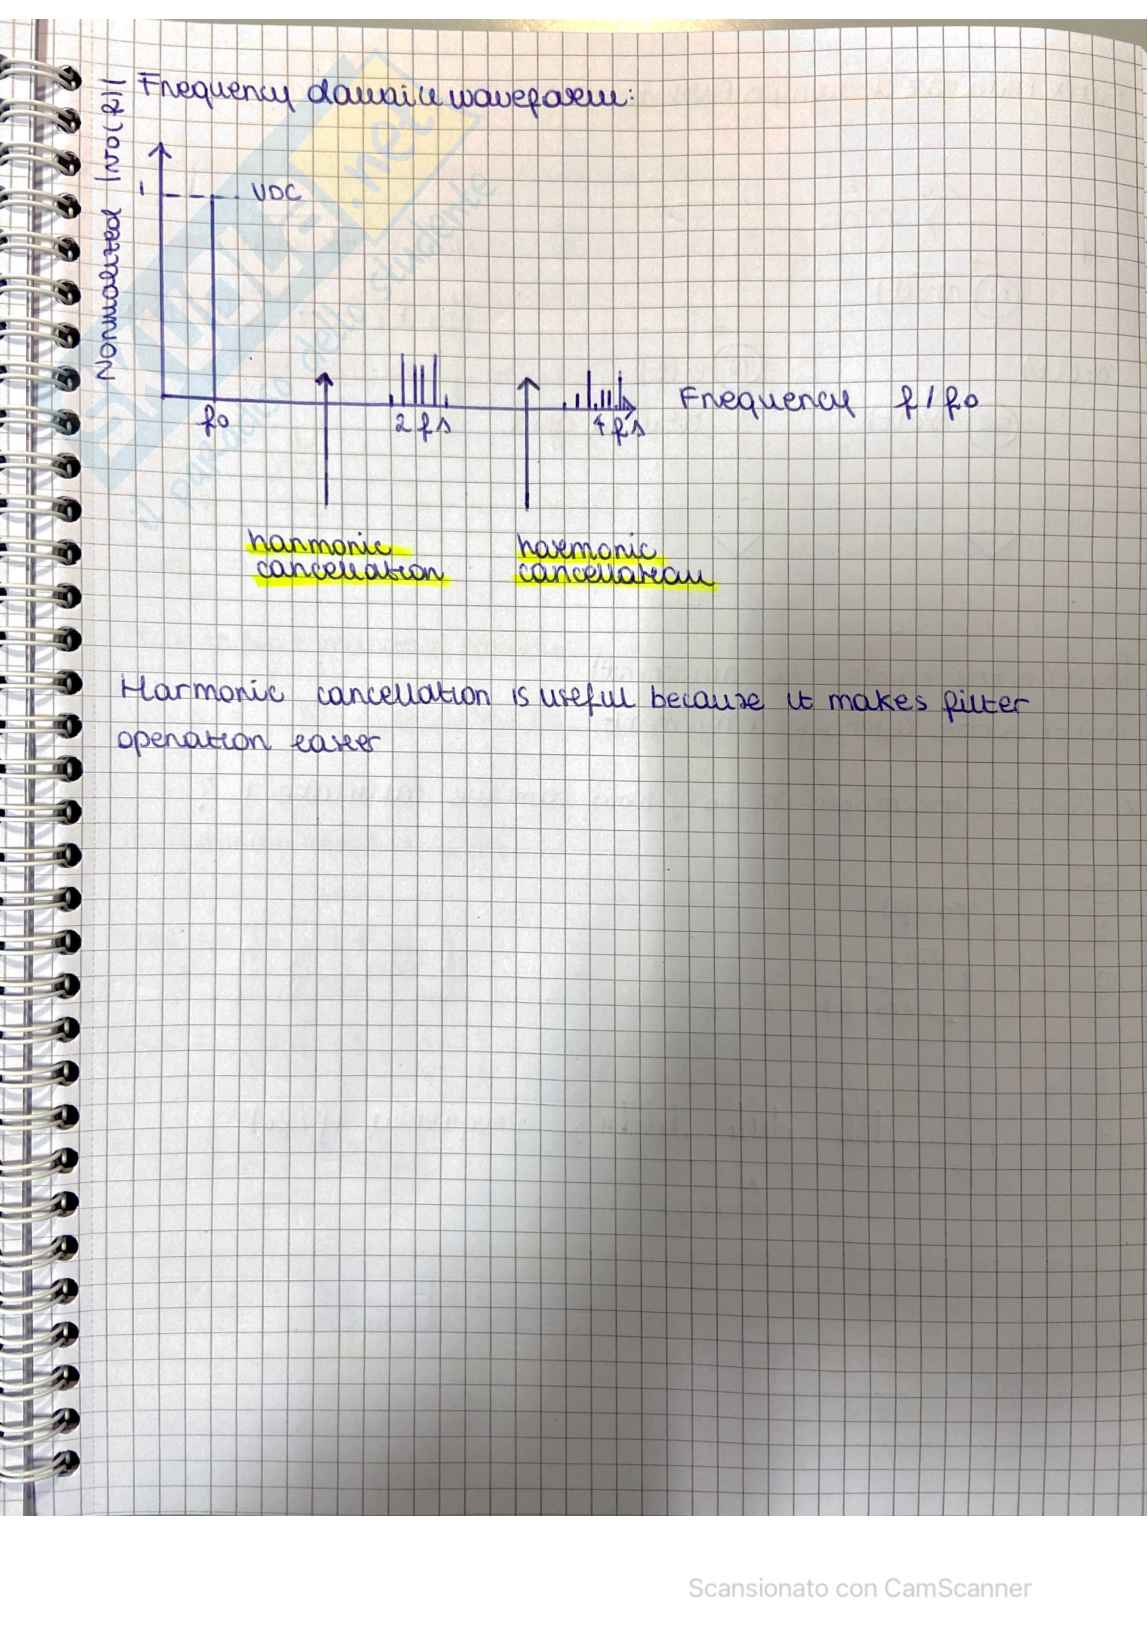 Frequency domain waveform:
Normalized |Vo(f)|
1
VDC
f0
2fs
4fs
Frequency f/f0
harmonic
cancellation
harmonic
cancellation
Harmonic cancellation is useful because it makes filter
operation easier
.net
il paradiso dello studente
Scansionato con CamScanner